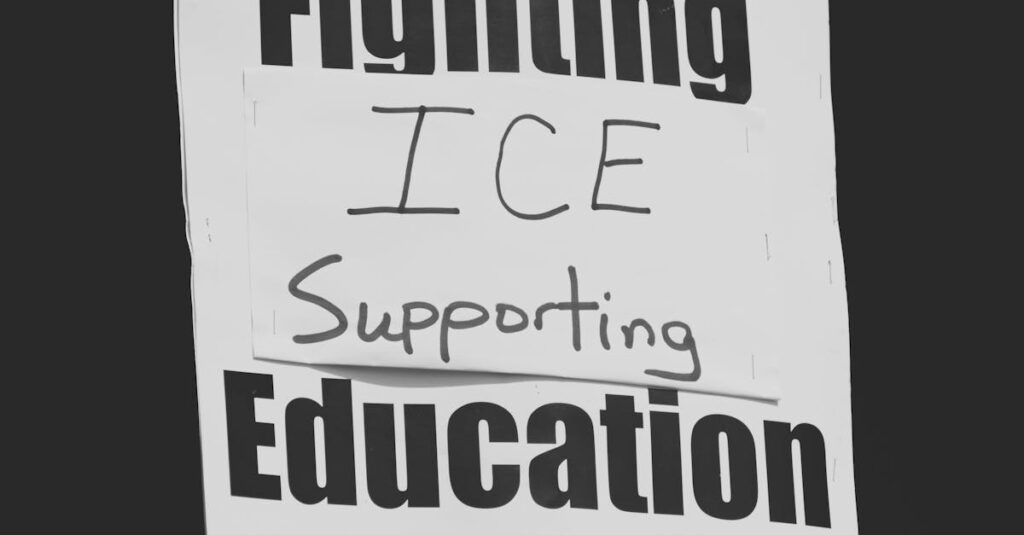 Fighting
ICE
Supporting
Education